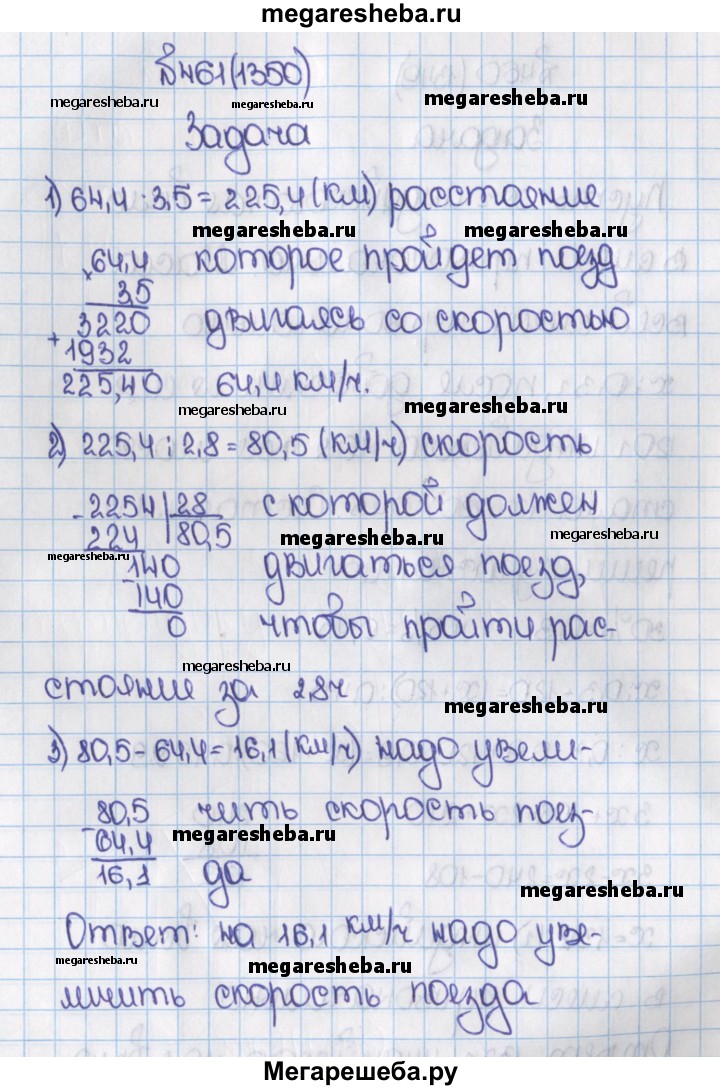 megaresheba.ru
№461(1350)
megaresheba.ru megaresheba.ru megaresheba.ru
Задача
1) 64,4 · 3,5 = 225,4 (км) расстояние
megaresheba.ru megaresheba.ru
× 64,4 которое пройдет поезд
3,5
+ 3220 двигаясь со скоростью
1932
225,40 64,4 км/ч.
megaresheba.ru megaresheba.ru
2) 225,4 : 2,8 = 80,5 (км/ч) скорость
- 2254 | 28 с которой должен
224 | 80,5
megaresheba.ru megaresheba.ru
- 140 двигаться поезд,
140
0 чтобы пройти рас-
megaresheba.ru
стояние за 2,8ч
megaresheba.ru
3) 80,5 - 64,4 = 16,1 (км/ч) надо увели-
- 80,5 чить скорость поез-
64,4 megaresheba.ru
16,1 да
megaresheba.ru
Ответ: на 16,1 км/ч надо уве-
megaresheba.ru megaresheba.ru
личить скорость поезда
megaresheba.ru megaresheba.ru
Мегарешеба.ру